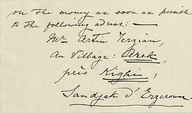 on the money as soon as possible
to the following adress:—
Mr. Artin Terzian,
Au Village: Arek,
près Kighi,
Sandjak d'Erzeroum